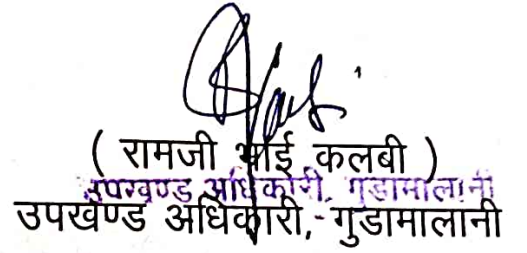 ( रामजी भाई कलबी )
उपखण्ड अधिकारी, गुडामालानी
उपखण्ड अधिकारी, गुडामालानी